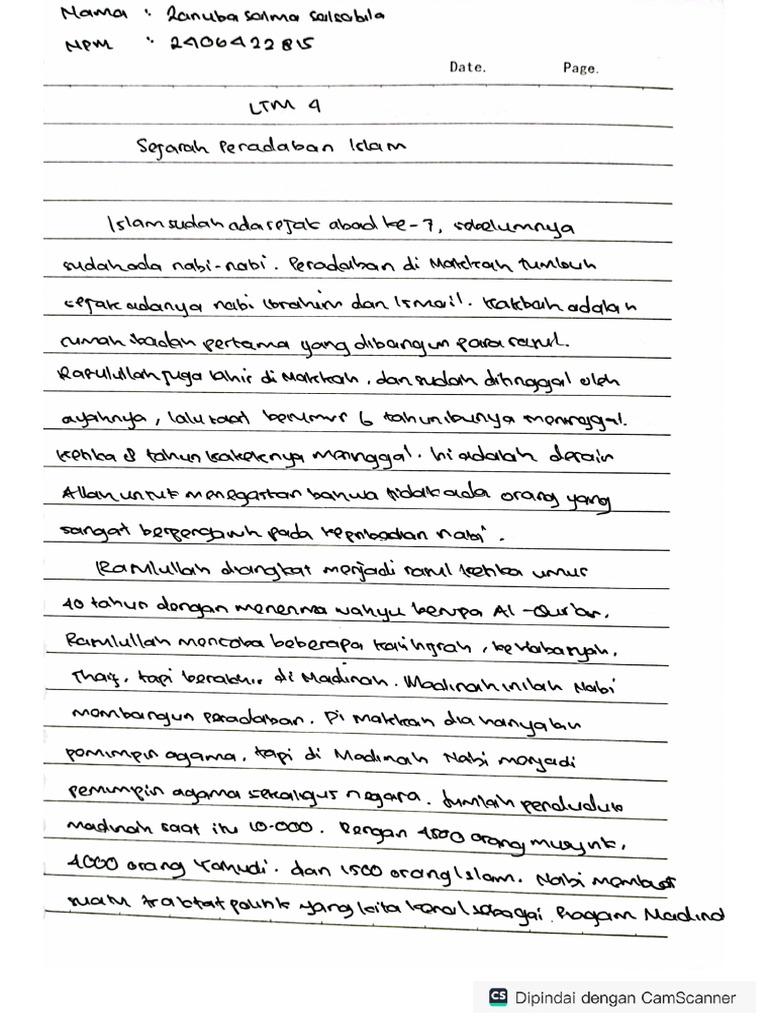 Nama : Zanuba salma salsabila
NPM : 2406422815
Date. Page.
LTM 4
Sejarah Peradaban Islam
Islam sudah ada sejak abad ke-7, sebelumnya
sudah ada nabi-nabi. Peradaban di Makkah tumbuh
sejak adanya nabi Ibrahim dan Ismail. Kakbah adalah
rumah ibadah pertama yang dibangun para rasul.
Rasulullah juga lahir di Makkah, dan sudah ditinggal oleh
ayahnya, lalu saat berumur 6 tahun ibunya meninggal.
Ketika 8 tahun kakeknya meninggal. Ini adalah desain
Allah untuk menegaskan bahwa tidak ada orang yang
sangat berpengaruh pada kepribadian nabi.
Rasulullah diangkat menjadi rasul ketika umur
40 tahun dengan menerima wahyu berupa Al-Qur'an.
Rasulullah mencoba beberapa kali hijrah, ke Habasyah,
Thaif, tapi berakhir di Madinah. Madinah inilah Nabi
membangun peradaban. Di Makkah dia hanyalah
pemimpin agama, tapi di Madinah Nabi menjadi
pemimpin agama sekaligus negara. Jumlah penduduk
madinah saat itu 10.000. Dengan 4500 orang musyrik,
4000 orang Yahudi. dan 1500 orang Islam. Nabi membuat
suatu traktat politik yang kita kenal sebagai Piagam Madind
CS Dipindai dengan CamScanner